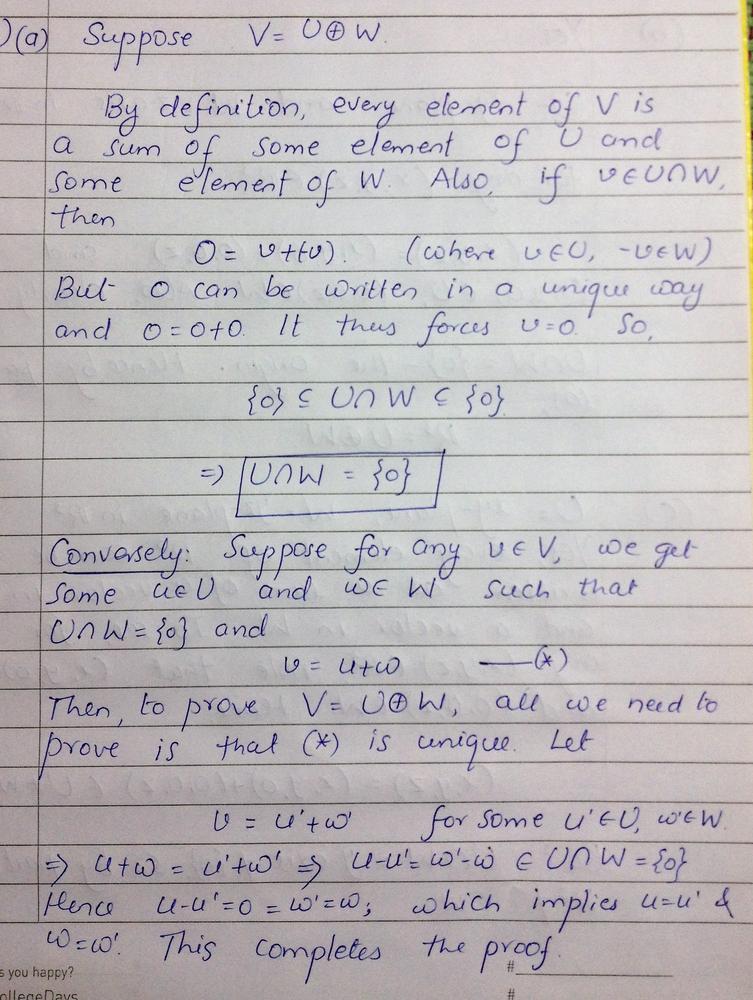 )(a) Suppose V = U⊕W.
By definition, every element of V is
a sum of some element of U and
some element of W. Also, if v∈U∩W,
then
0 = v+(-v). (where v∈U, -v∈W)
But 0 can be written in a unique way
and 0=0+0. It thus forces v=0. So,
{0} ⊆ U∩W ⊆ {0}
=> U∩W = {0}
Conversely: Suppose for any v∈V, we get
some u∈U and w∈W such that
U∩W={0} and
v = u+w —(*)
Then, to prove V=U⊕W, all we need to
prove is that (*) is unique. Let
v = u'+w' for some u'∈U, w'∈W.
=> u+w = u'+w' => u-u'=w'-w ∈ U∩W={0}
Hence u-u'=0=w'=w; which implies u=u' &
w=w'. This completes the proof.
s you happy?
#
ollegeDays
#